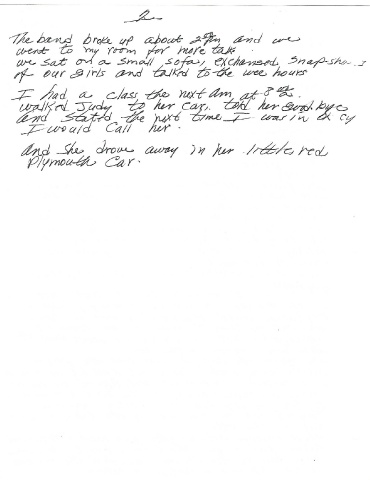 2
The band broke up about 2 am and we
went to my room for more talk.
we sat on a small sofa, exchanged snapsho s
of our girls and talked to the wee hours
I had a class the next am at 8
walked Judy to her car, told her goodbye
and stated the next time I was in
I would call her.
And she drove away in her little red
Plymouth Car.